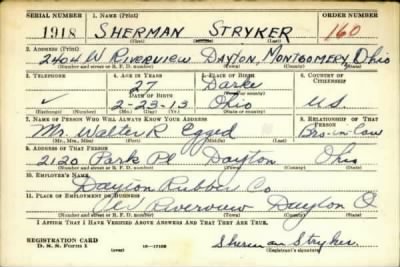 SERIAL NUMBER 1. NAME (Print) ORDER NUMBER
1918 SHERMAN STRYKER 160
(First) (Middle) (Last)
2. ADDRESS (Print)
2404 W RIVERVIEW DAYTON, MONTGOMERY, Ohio
(Number and street or R. F. D. number) (Town) (County) (State)
3. TELEPHONE 4. AGE IN YEARS 5. PLACE OF BIRTH 6. COUNTRY OF CITIZENSHIP
27 Darke
DATE OF BIRTH (Town or county)
✓ 2-23-13 Ohio U.S.
(Exchange) (Number) (Mo.) (Day) (Yr.) (State or country)
7. NAME OF PERSON WHO WILL ALWAYS KNOW YOUR ADDRESS 8. RELATIONSHIP OF THAT PERSON
Mr. Walter R Bro-in-law
(Mr., Mrs., Miss) (First) (Middle) (Last)
9. ADDRESS OF THAT PERSON
2120 Park Pl Dayton Ohio
(Number and street or R. F. D. number) (Town) (County) (State)
10. EMPLOYER'S NAME
Dayton Rubber Co
11. PLACE OF EMPLOYMENT OR BUSINESS
Riverview Dayton O
(Number and street or R. F. D. number) (Town) (County) (State)
I AFFIRM THAT I HAVE VERIFIED ABOVE ANSWERS AND THAT THEY ARE TRUE.
REGISTRATION CARD
D. S. S. Form 1 16—17105 Sherman Stryker
(Registrant's signature)